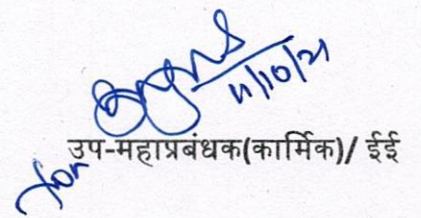 11/10/21
for उप-महाप्रबंधक(कार्मिक)/ ईई